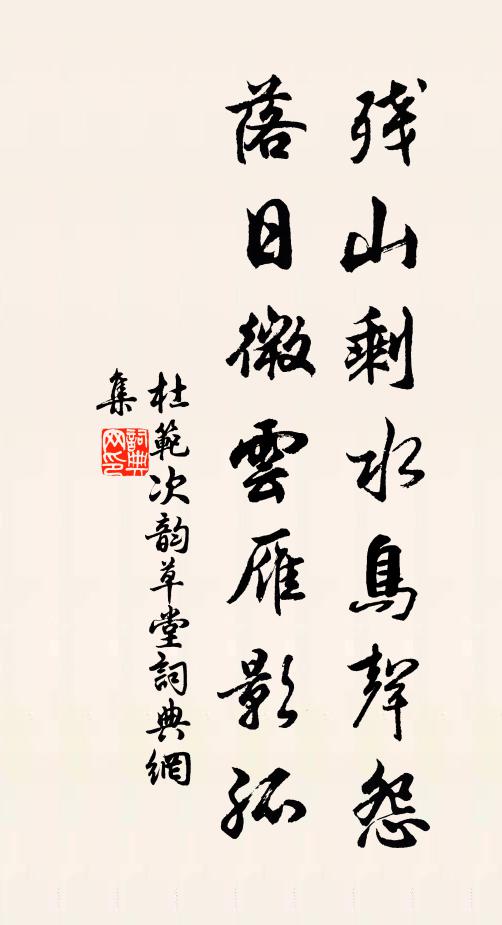 残山剩水鳥聲怨
落日微雲雁影孤
杜範次韵草堂詞典網
集
詞典
网印